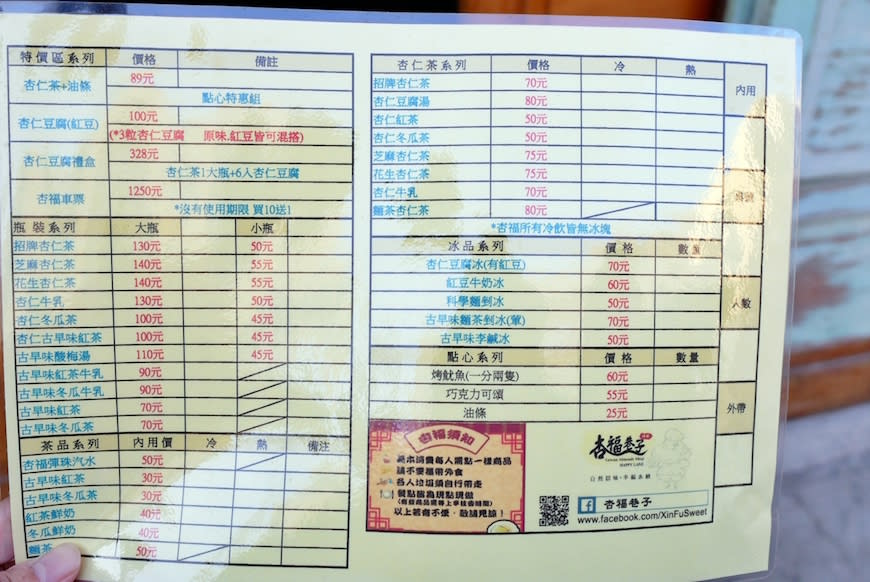 特價區系列 價格 備註
杏仁茶+油條 89元
點心特惠組
杏仁豆腐(紅豆) 100元
(*3粒杏仁豆腐 原味.紅豆皆可混搭)
杏仁豆腐禮盒 328元
杏仁茶1大瓶+6入杏仁豆腐
杏福車票 1250元
*沒有使用期限 買10送1
瓶裝系列 大瓶 小瓶
招牌杏仁茶 130元 50元
芝麻杏仁茶 140元 55元
花生杏仁茶 140元 55元
杏仁牛乳 130元 50元
杏仁冬瓜茶 100元 45元
杏仁古早味紅茶 100元 45元
古早味酸梅湯 110元 45元
古早味紅茶牛乳 90元
古早味冬瓜牛乳 90元
古早味紅茶 70元
古早味冬瓜茶 70元
茶品系列 內用價 冷 熱 備註
杏福彈珠汽水 50元
古早味紅茶 30元
古早味冬瓜茶 30元
紅茶鮮奶 40元
冬瓜鮮奶 40元
麵茶 50元
杏仁茶系列 價格 冷 熱
招牌杏仁茶 70元
杏仁豆腐湯 80元
杏仁紅茶 50元
杏仁冬瓜茶 50元
芝麻杏仁茶 75元
花生杏仁茶 75元
杏仁牛乳 70元
麵茶杏仁茶 80元
*杏福所有冷飲皆無冰塊
冰品系列 價格 數量
杏仁豆腐冰(有紅豆) 70元
紅豆牛奶冰 60元
科學麵到冰 50元
古早味麵茶到冰(葷) 70元
古早味李鹹冰 50元
點心系列 價格 數量
烤魷魚(一分兩隻) 60元
巧克力可頌 55元
油條 25元
內用
人數
外帶
杏福須知
基本消費每人需點一樣商品
請不要攜帶外食
各人垃圾請自行帶走
餐點皆為現點現做
以上若有不便，敬請見諒！
杏福巷子
HAPPY LANE
自然原味·幸福永續
杏福巷子
www.facebook.com/XinFuSweet